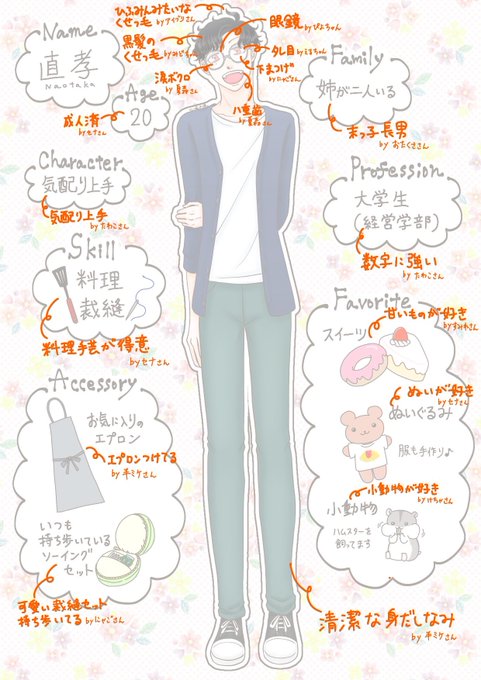 Name
直孝
Naotaka
Age
20
成人済
by セナさん
Character
気配り上手
気配り上手
by たわこさん
Skill
料理
裁縫
料理手芸が得意
by セナさん
Accessory
お気に入りの
エプロン
エプロンつけてる
by 平ミケさん
いつも
持ち歩いている
ソーイング
セット
可愛い裁縫セット
持ち歩いてる by にゃごさん
ひふみんみたいな
くせっ毛
黒髪の
くせっ毛
涙ボクロ
眼鏡
by ぴよちゃん
タレ目
下まつげ
by にゃごさん
八重歯
Family
姉が二人いる
末っ子長男
by おたくささん
Profession
大学生
(経営学部)
数字に強い
by たわこさん
Favorite
スイーツ
甘いものが好き
ぬいが好き
by セナさん
ぬいぐるみ
服も手作り♪
小動物が好き
小動物
ハムスターを
飼ってます
清潔な身だしなみ
by 平ミケさん